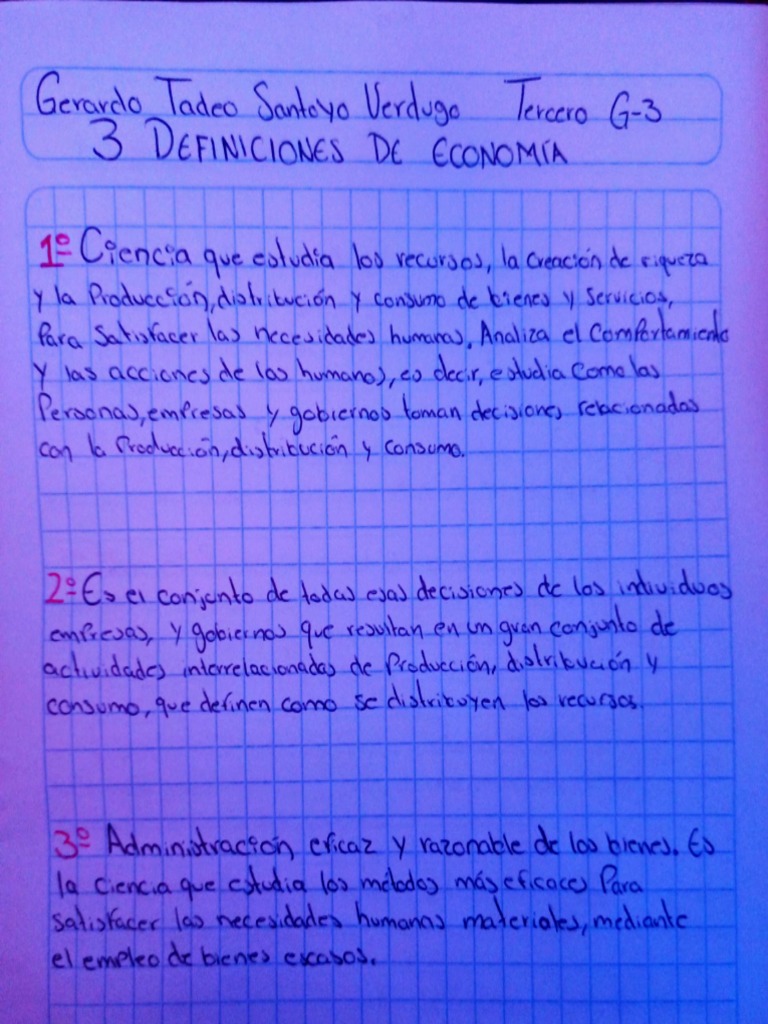 Gerardo Tadeo Santoyo Verdugo Tercero G-3
3 DEFINICIONES DE ECONOMÍA
1º Ciencia que estudia los recursos, la creación de riqueza
y la Producción, distribución y consumo de bienes y servicios,
Para Satisfacer las necesidades humanas. Analiza el Comportamiento
y las acciones de los humanos, es decir, estudia Como las
Personas, empresas y gobiernos toman decisiones relacionadas
con la Producción, distribución y consumo.
2º Es el conjunto de todas esas decisiones de los individuos
empresas, y gobiernos que resultan en un gran conjunto de
actividades interrelacionadas de Producción, distribución y
consumo, que definen como se distribuyen los recursos.
3º Administración eficaz y razonable de los bienes. Es
la ciencia que estudia los métodos más eficaces Para
satisfacer las necesidades humanas materiales, mediante
el empleo de bienes escasos.